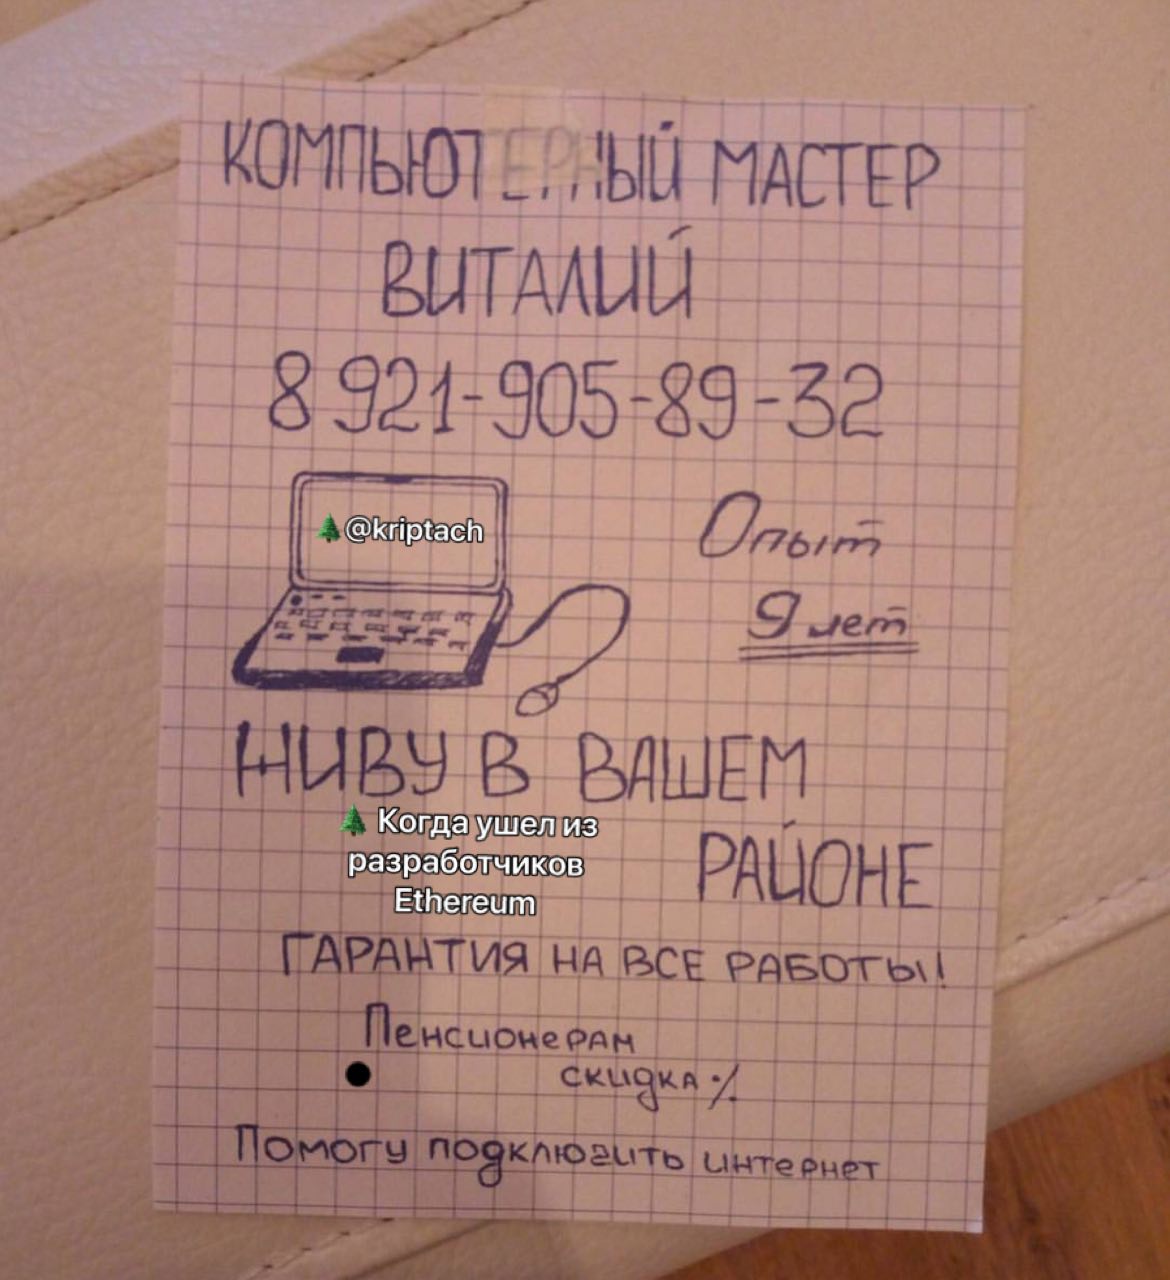 КОМПЬЮТЕРНЫЙ МАСТЕР
ВИТАЛИЙ
8 921-905-89-32
🌲@kriptach
Опыт
9 лет
ЖИВУ В ВАШЕМ
РАЙОНЕ
🌲 Когда ушел из
разработчиков
Ethereum
ГАРАНТИЯ НА ВСЕ РАБОТЫ!
Пенсионерам
скидка %
Помогу подключить интернет